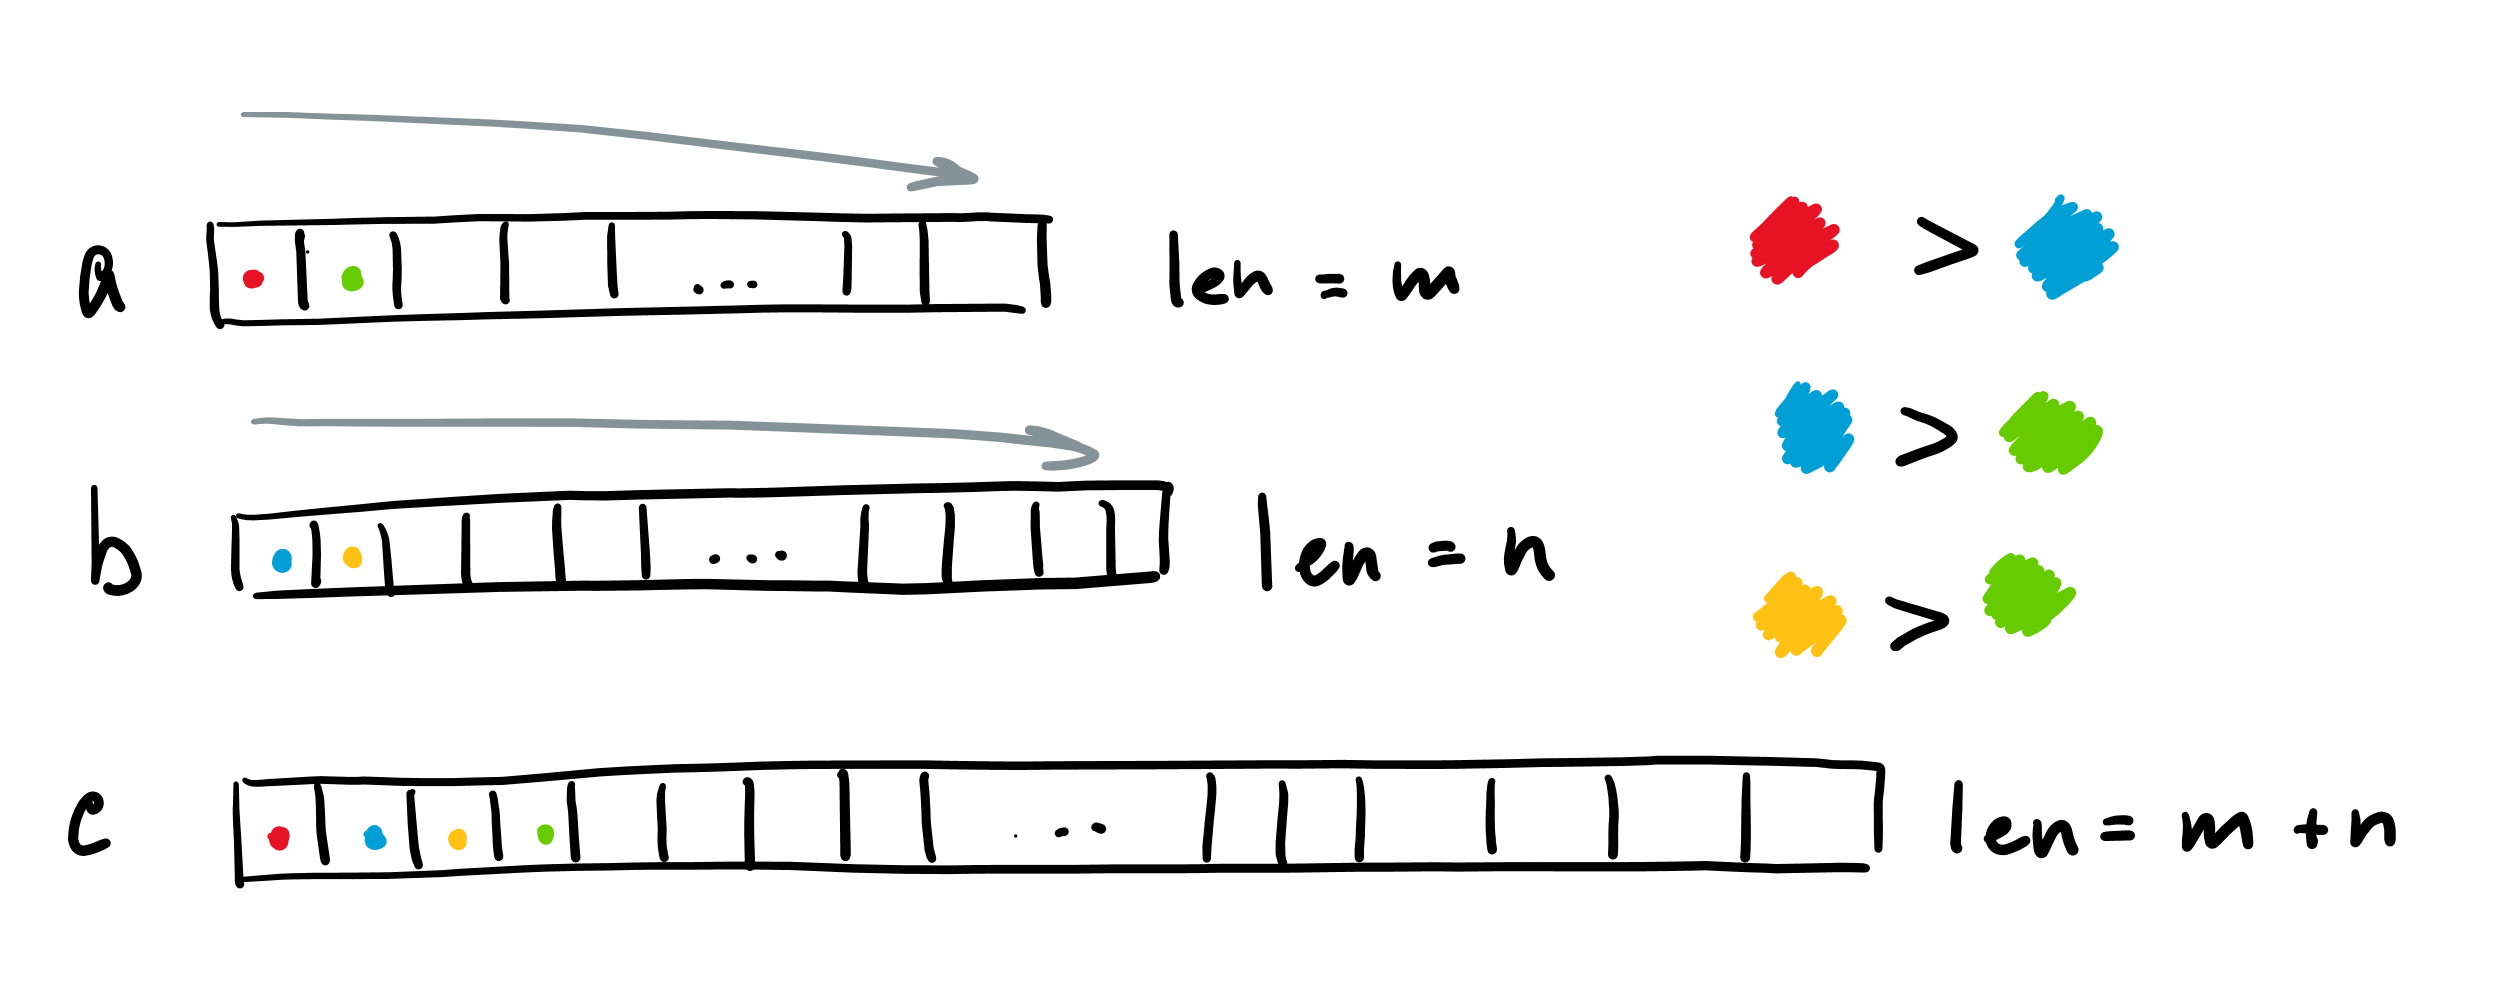 a ... len = m >
>
b ... len = n
>
c ... len = m + n